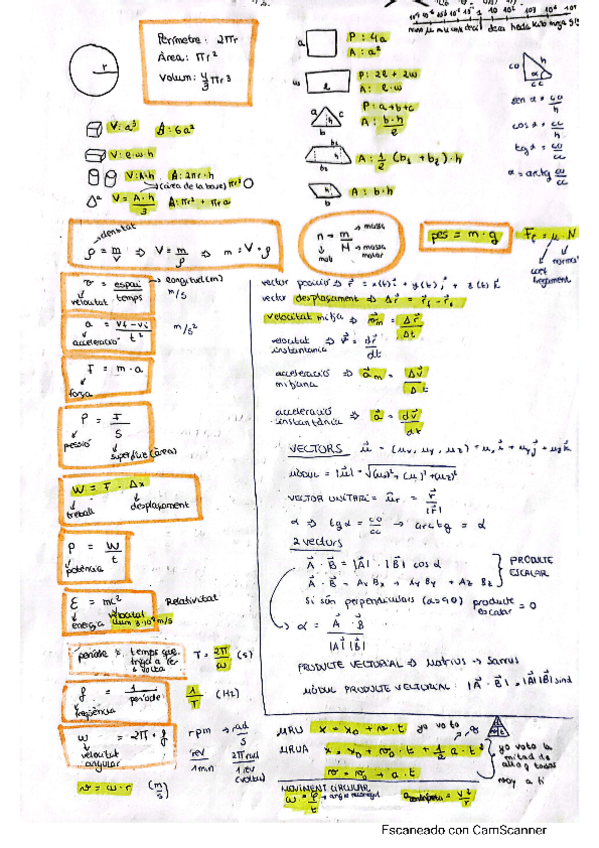 Perímetre: 2πr
Àrea: πr²
Volum: 4/3 πr³
r
a
P: 4a
A: a²
w
l
P: 2l + 2w
A: l·w
a
h
c
b
P: a+b+c
A: b·h/2
b₂
h
b₁
A: 1/2 (b₁ + b₂)·h
h
b
A: b·h
co
h
α
cc
sen α = co/h
cos α = cc/h
tg α = co/cc
α = arctg co/cc
V: a³ A: 6a²
V: l·w·h
V: A·h A: 2πr·h
(àrea de la base) πr²
V = A·h/3 A: πr² + πra
densitat
ρ = m/V ⇒ V = m/ρ ⇒ m = V·ρ
n = m/M
mols
massa
massa molar
pes = m·g
Ff = μ·N
coef
fregament
normal
v = espai/temps
velocitat
longitud (m)
m/s
a = vf - vi/t²
acceleració
m/s²
F = m·a
força
P = F/S
pressió
superfície (àrea)
W = F·Δx
treball
desplaçament
P = W/t
potència
E = mc²
energia
velocitat
llum 3·10⁸ m/s
Relativitat
període = temps que
T = 2π/ω (s)
f = 1/període
freqüència
1/T (Hz)
ω = 2π·f
velocitat
angular
rpm → rad/s
rev/1 min
2π rad/1 rev
(volta)
v = ω·r (m/s)
vector posició ⇒ r = x(t)i + y(t)j + z(t)k
vector desplaçament ⇒ Δr = rf - ri
velocitat mitja ⇒ vm = Δr/Δt
velocitat
instantània ⇒ v = dr/dt
acceleració
mitjana ⇒ am = Δv/Δt
acceleració
instantània ⇒ a = dv/dt
VECTORS u = (ux, uy, uz) = ux i + uy j + uz k
MÒDUL = |u| =
VECTOR UNITARI = ur = r/|r|
α ⇒ tg α = co/cc → arctg = α
2 vectors
A · B = |A| · |B| cos α
A · B = Ax Bx + Ay By + Az Bz
PRODUCTE
ESCALAR
Si són perpendiculars (α=90) producte
escalar = 0
α = A · B/|A||B|
PRODUCTE VECTORIAL ⇒ Matrius → Sarrus
MÒDUL PRODUCTE VECTORIAL: |A · B| = |A||B| sinα
MRU x = x₀ + v·t
yo voto
MRUA x = x₀ + v₀·t + 1/2 a·t²
v = v₀ + a·t
yo voto la
mitad de
MOVIMENT CIRCULAR
ω = φ/t → angle recorregut
a centrípeta = v²/r
Escaneado con CamScanner